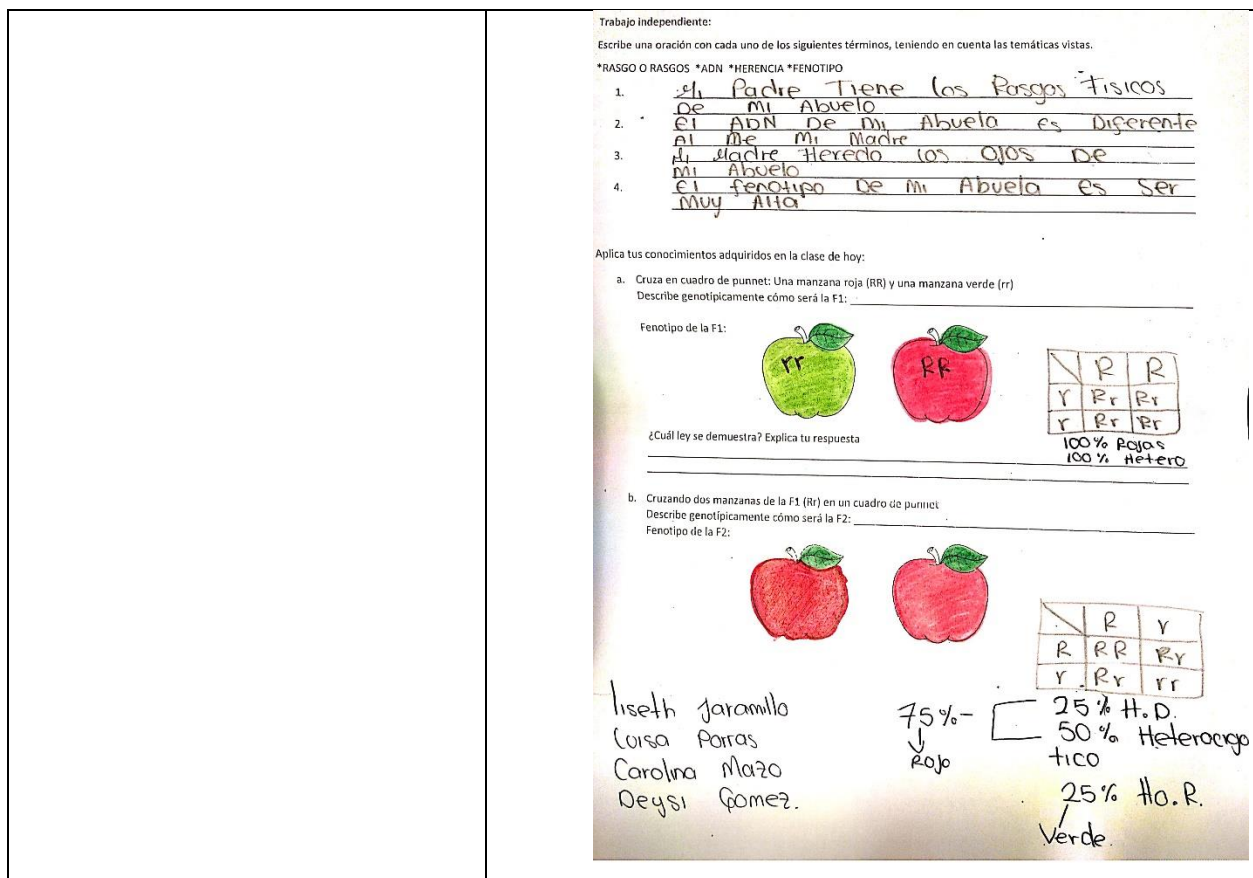 Trabajo independiente:
Escribe una oración con cada uno de los siguientes términos, teniendo en cuenta las temáticas vistas.
*RASGO O RASGOS *ADN *HERENCIA *FENOTIPO
1. Mi Padre Tiene los Rasgos Fisicos
De Mi Abuelo
2. El ADN De Mi Abuela es Diferente
Al De Mi Madre
3. Mi Madre Heredo los Ojos De
Mi Abuelo
4. El fenotipo De Mi Abuela es Ser
Muy Alta
Aplica tus conocimientos adquiridos en la clase de hoy:
a. Cruza en cuadro de punnet: Una manzana roja (RR) y una manzana verde (rr)
Describe genotípicamente cómo será la F1:
Fenotipo de la F1:
rr RR
R R
r Rr Rr
r Rr Rr
100% Rojas
100% Hetero
¿Cuál ley se demuestra? Explica tu respuesta
b. Cruzando dos manzanas de la F1 (Rr) en un cuadro de punnet
Describe genotípicamente cómo será la F2:
Fenotipo de la F2:
R r
R RR Rr
r Rr rr
liseth Jaramillo
Luisa Porras
Carolina Mazo
Deysi Gomez.
75%-
Rojo
25% H.D.
50% Heterocigo
tico
25% Ho.R.
Verde.